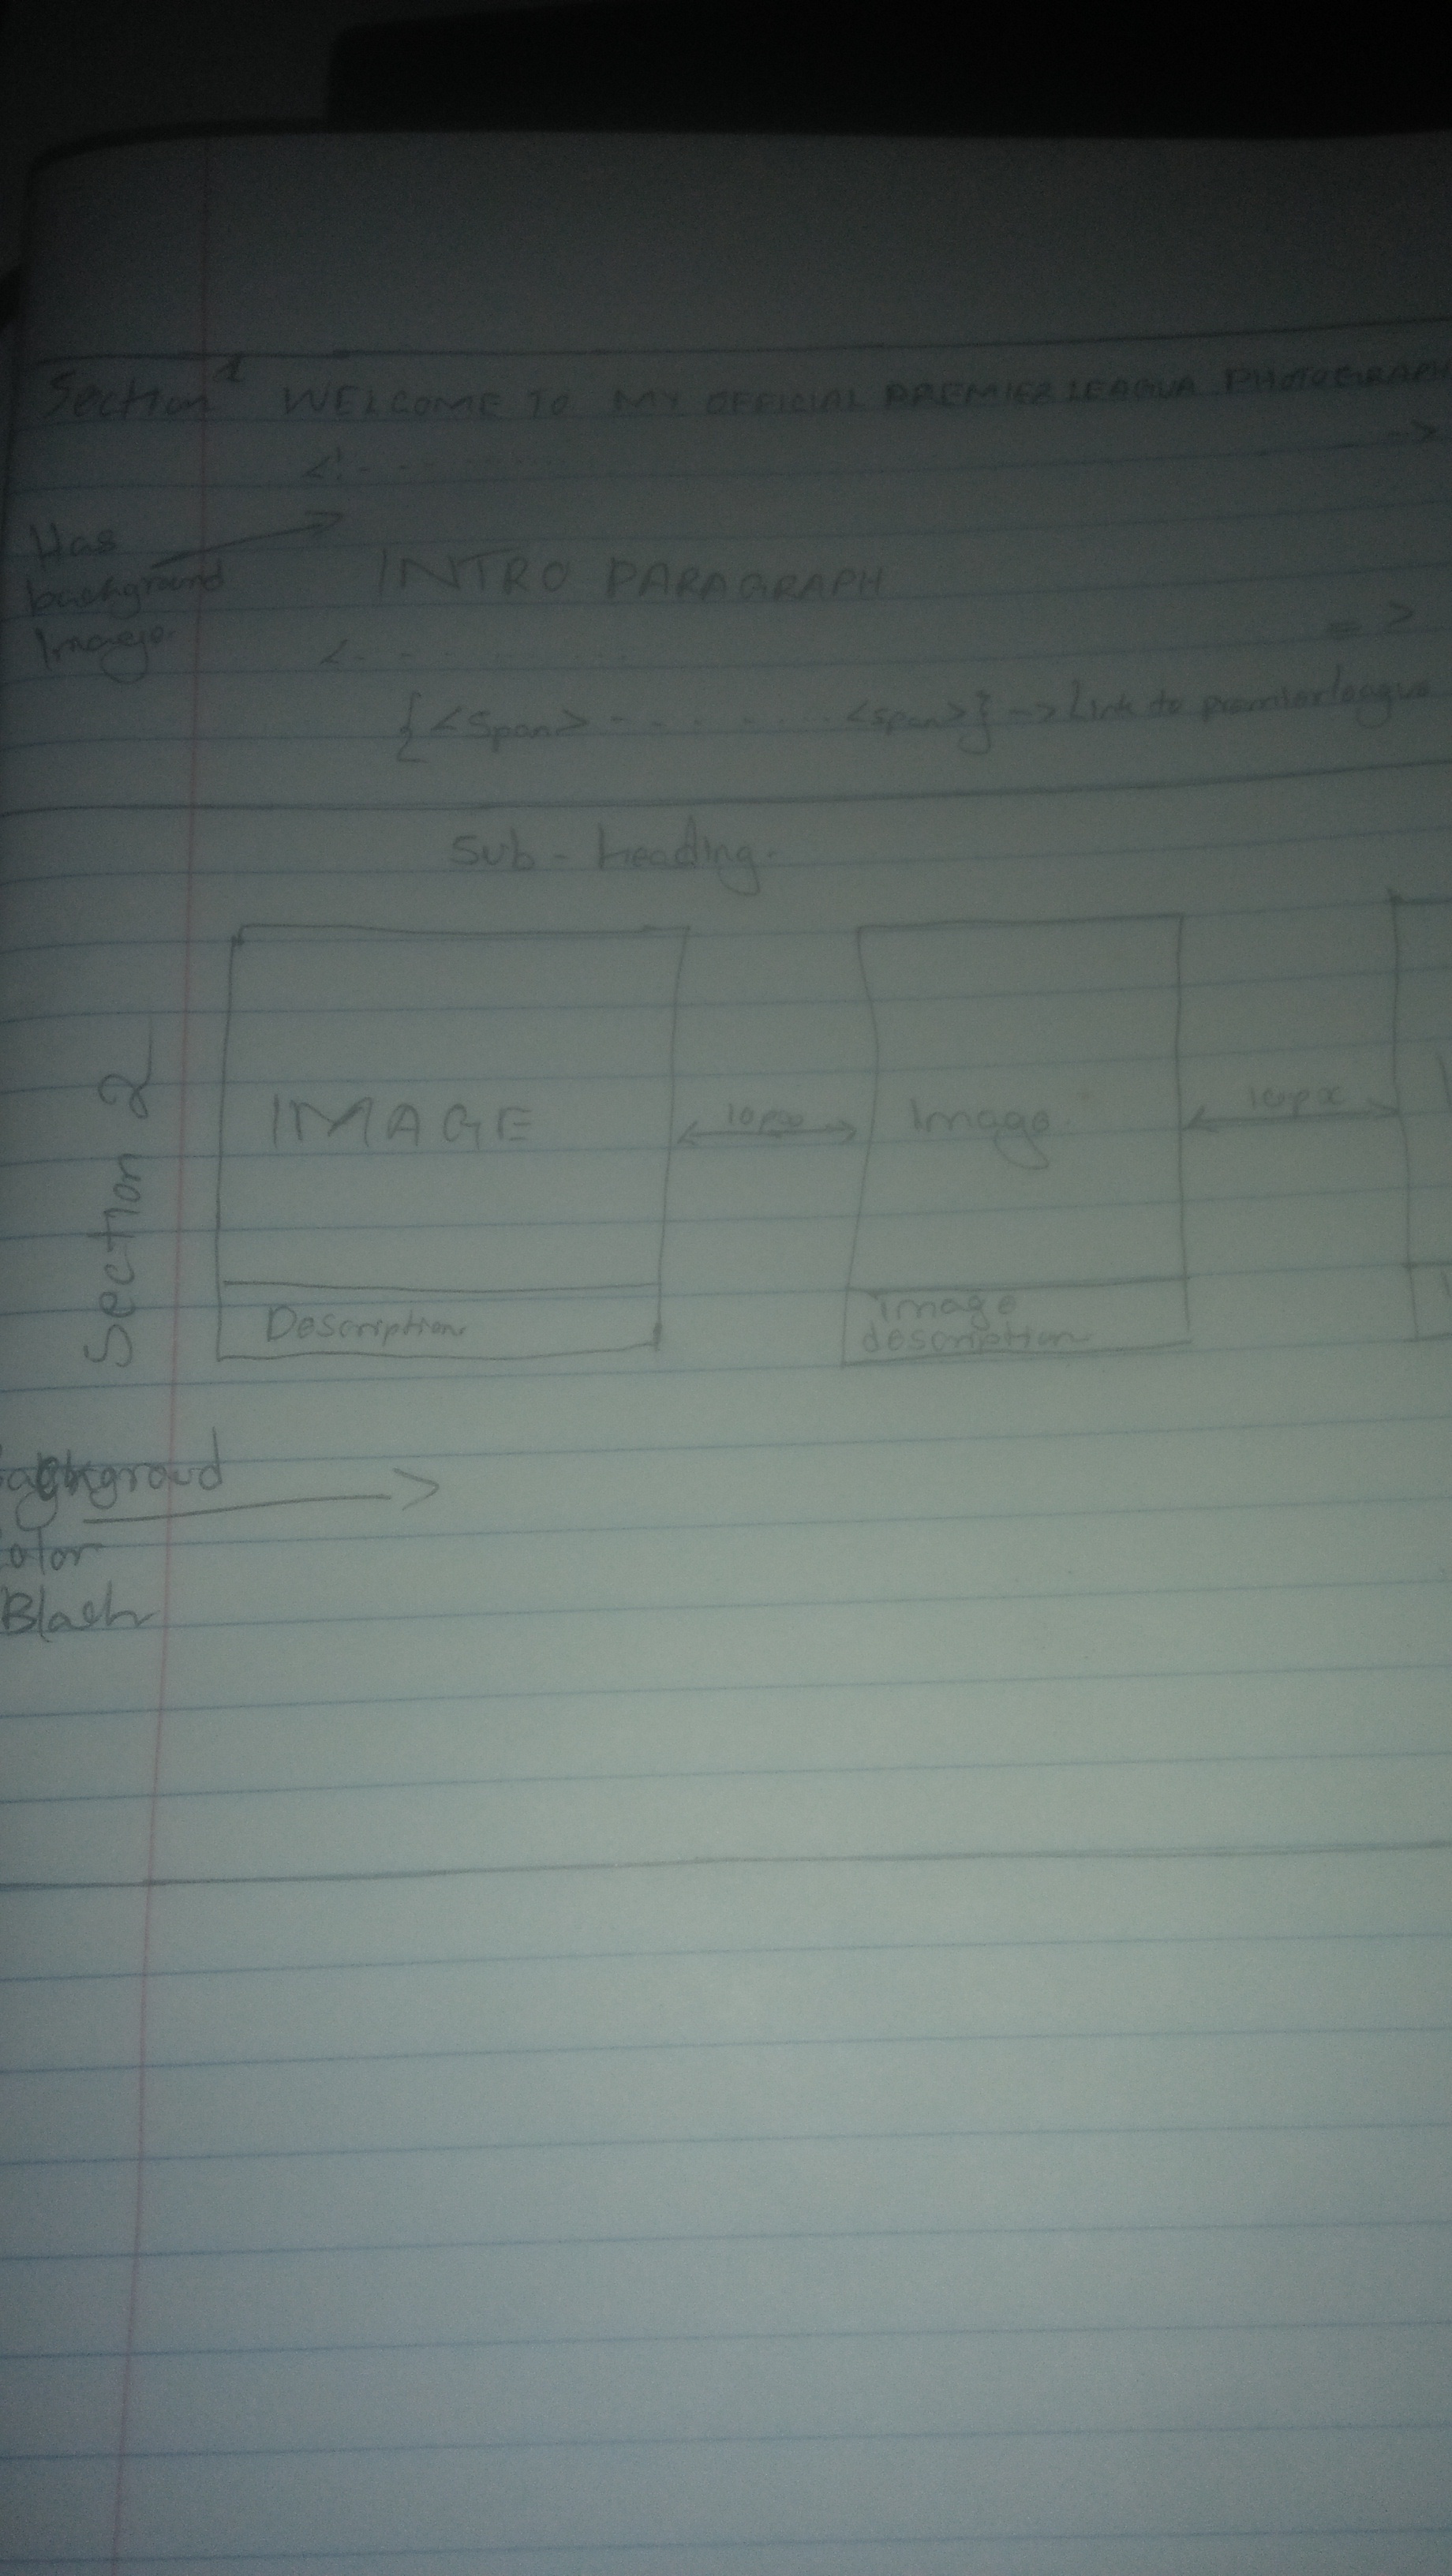 Section 1 WELCOME TO MY OFFICIAL PREMIER LEAGUA PHOTOGRAPH
<! - - - - - - - - - ->
Has
background
Image
INTRO PARAGRAPH
<- - - - - - - - = >
{<span> - - - - - <span>} -> Link to premierleague
Sub - heading.
Section 2
IMAGE
10px
Image
10px
Description
image
description
ackgroud
olor
Black